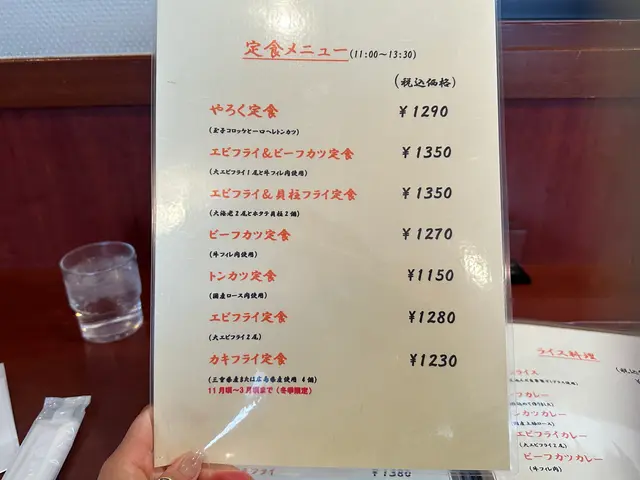 定食メニュー(11:00～13:30)
(税込価格)
やろく定食 ￥1290
(玉子コロッケとヒーロヘレトンカツ)
エビフライ＆ビーフカツ定食 ￥1350
(大エビフライ1尾と牛フィレ肉使用)
エビフライ＆貝柱フライ定食 ￥1350
(大海老2尾とホタテ貝柱2個)
ビーフカツ定食 ￥1270
(牛フィレ肉使用)
トンカツ定食 ￥1150
(国産ロース肉使用)
エビフライ定食 ￥1280
(大エビフライ2尾)
カキフライ定食 ￥1230
(三重県産または広島県産使用 4個)
11月頃～3月頃まで（冬季限定）
フライ ￥1380
ライス料理
ライス
フカレー
ンカツカレー
エビフライカレー
(大エビフライ2尾)
ビーフカツカレー
(牛フィレ肉)